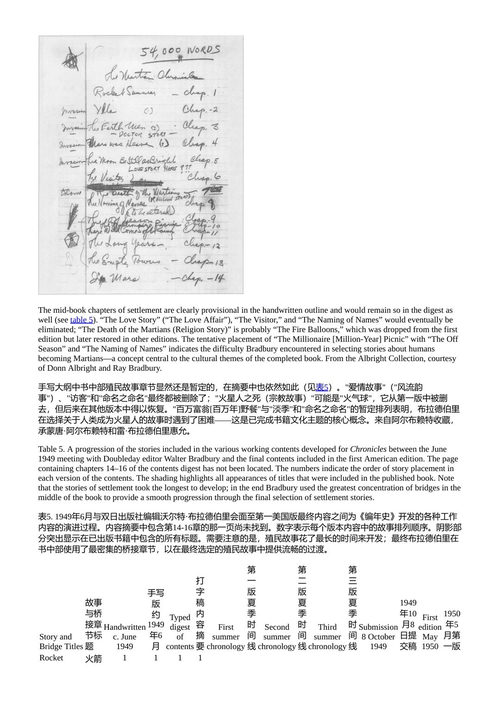 54,000 WORDS
The Martian Chronicles
Rocket Summer — Chap. 1
Ylla Chap. - 2
The Earth Men Chap. 3
— DOCTOR STORY —
Mars was Heaven Chap. 4
The Moon Be Still as Bright Chap. 5
LOVE STORY HERE ???
The Visitor Chap. 6
The Death of the Martians
The Naming of Names Chap.
Chap. 9
The Long Years — Chap - 12
The Empty Towns — Chap - 13
— Chap. - 14
The mid-book chapters of settlement are clearly provisional in the handwritten outline and would remain so in the digest as
well (see table 5). “The Love Story” (“The Love Affair”), “The Visitor,” and “The Naming of Names” would eventually be
eliminated; “The Death of the Martians (Religion Story)” is probably “The Fire Balloons,” which was dropped from the first
edition but later restored in other editions. The tentative placement of “The Millionaire [Million-Year] Picnic” with “The Off
Season” and “The Naming of Names” indicates the difficulty Bradbury encountered in selecting stories about humans
becoming Martians—a concept central to the cultural themes of the completed book. From the Albright Collection, courtesy
of Donn Albright and Ray Bradbury.
手写大纲中书中部殖民故事章节显然还是暂定的，在摘要中也依然如此（见表5）。"爱情故事"（"风流韵
事"）、"访客"和"命名之命名"最终都被删除了；"火星人之死（宗教故事）"可能是"火气球"，它从第一版中被删
去，但后来在其他版本中得以恢复。"百万富翁[百万年]野餐"与"淡季"和"命名之命名"的暂定排列表明，布拉德伯里
在选择关于人类成为火星人的故事时遇到了困难——这是已完成书籍文化主题的核心概念。来自阿尔布赖特收藏，
承蒙唐·阿尔布赖特和雷·布拉德伯里惠允。
Table 5. A progression of the stories included in the various working contents developed for Chronicles between the June
1949 meeting with Doubleday editor Walter Bradbury and the final contents included in the first American edition. The page
containing chapters 14–16 of the contents digest has not been located. The numbers indicate the order of story placement in
each version of the contents. The shading highlights all appearances of titles that were included in the published book. Note
that the stories of settlement took the longest to develop; in the end Bradbury used the greatest concentration of bridges in the
middle of the book to provide a smooth progression through the final selection of settlement stories.
表5. 1949年6月与双日出版社编辑沃尔特·布拉德伯里会面至第一美国版最终内容之间为《编年史》开发的各种工作
内容的演进过程。内容摘要中包含第14-16章的那一页尚未找到。数字表示每个版本内容中的故事排列顺序。阴影部
分突出显示在已出版书籍中包含的所有标题。需要注意的是，殖民故事花了最长的时间来开发；最终布拉德伯里在
书中部使用了最密集的桥接章节，以在最终选定的殖民故事中提供流畅的过渡。
Story and Bridge Titles
故事与桥接章节标题
Handwritten c. June 1949
手写版约1949年6月
Typed digest of contents
打字稿内容摘要
First summer chronology
第一版夏季时间线
Second summer chronology
第二版夏季时间线
Third summer chronology
第三版夏季时间线
Submission 8 October 1949
1949年10月8日提交稿
First edition May 1950
1950年5月第一版
Rocket 火箭 1 1 1 1